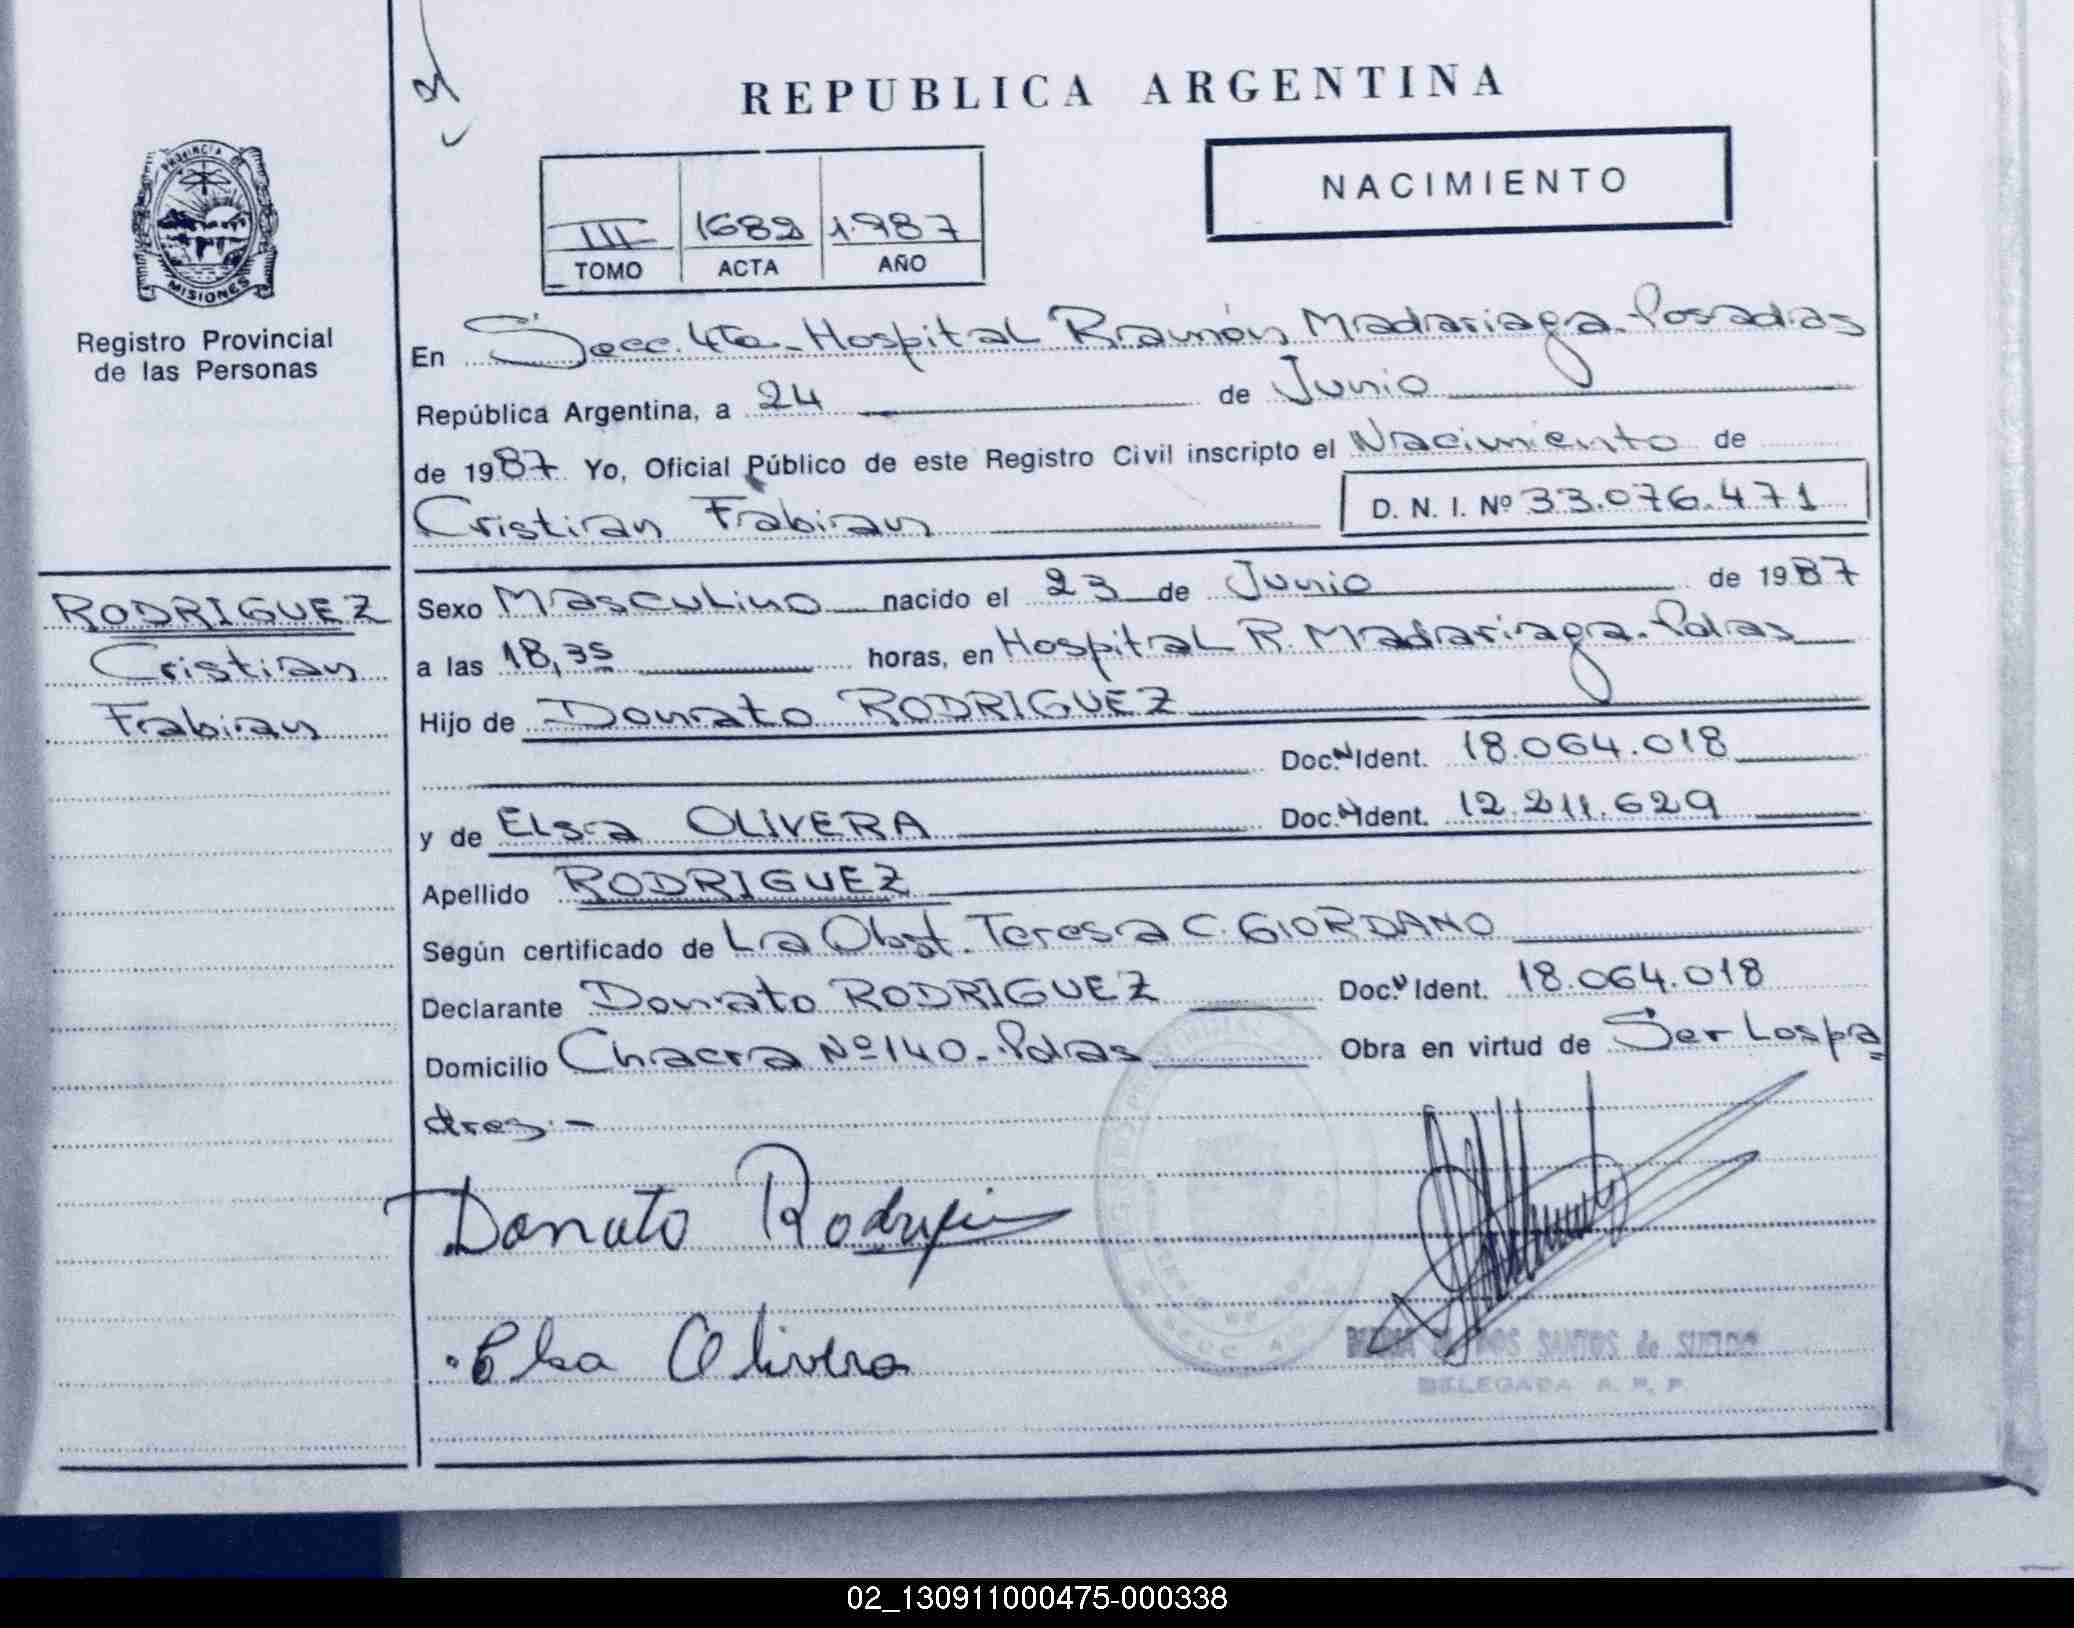 REPUBLICA ARGENTINA
NACIMIENTO
III 1689 1.987
TOMO ACTA AÑO
PROVINCIA DE
MISIONES
Registro Provincial
de las Personas
En Secc. 4ta. Hospital Ramón Madariaga. Posadas
República Argentina, a 24 de Junio
de 1987 Yo, Oficial Público de este Registro Civil inscripto el Nacimiento de
Cristian Fabian D. N. I. Nº 33.076.471
RODRIGUEZ
Cristian
Fabian
Sexo Masculino nacido el 23 de Junio de 1987
a las 18,35 horas, en Hospital R. Madariaga. Pdas
Hijo de Donato RODRIGUEZ
Doc. N Ident. 18.064.018
y de Elsa OLIVERA Doc. N Ident. 12.211.629
Apellido RODRIGUEZ
Según certificado de La Obst. Teresa C. GIORDANO
Declarante Donato RODRIGUEZ Doc. N Ident. 18.064.018
Domicilio Chacra Nº 140. Pdas Obra en virtud de Ser Los pa
dres.-
Donato Rodrigue
Elsa Olivera
DOS SANTOS de
DELEGADA R. P. P.
02_130911000475-000338